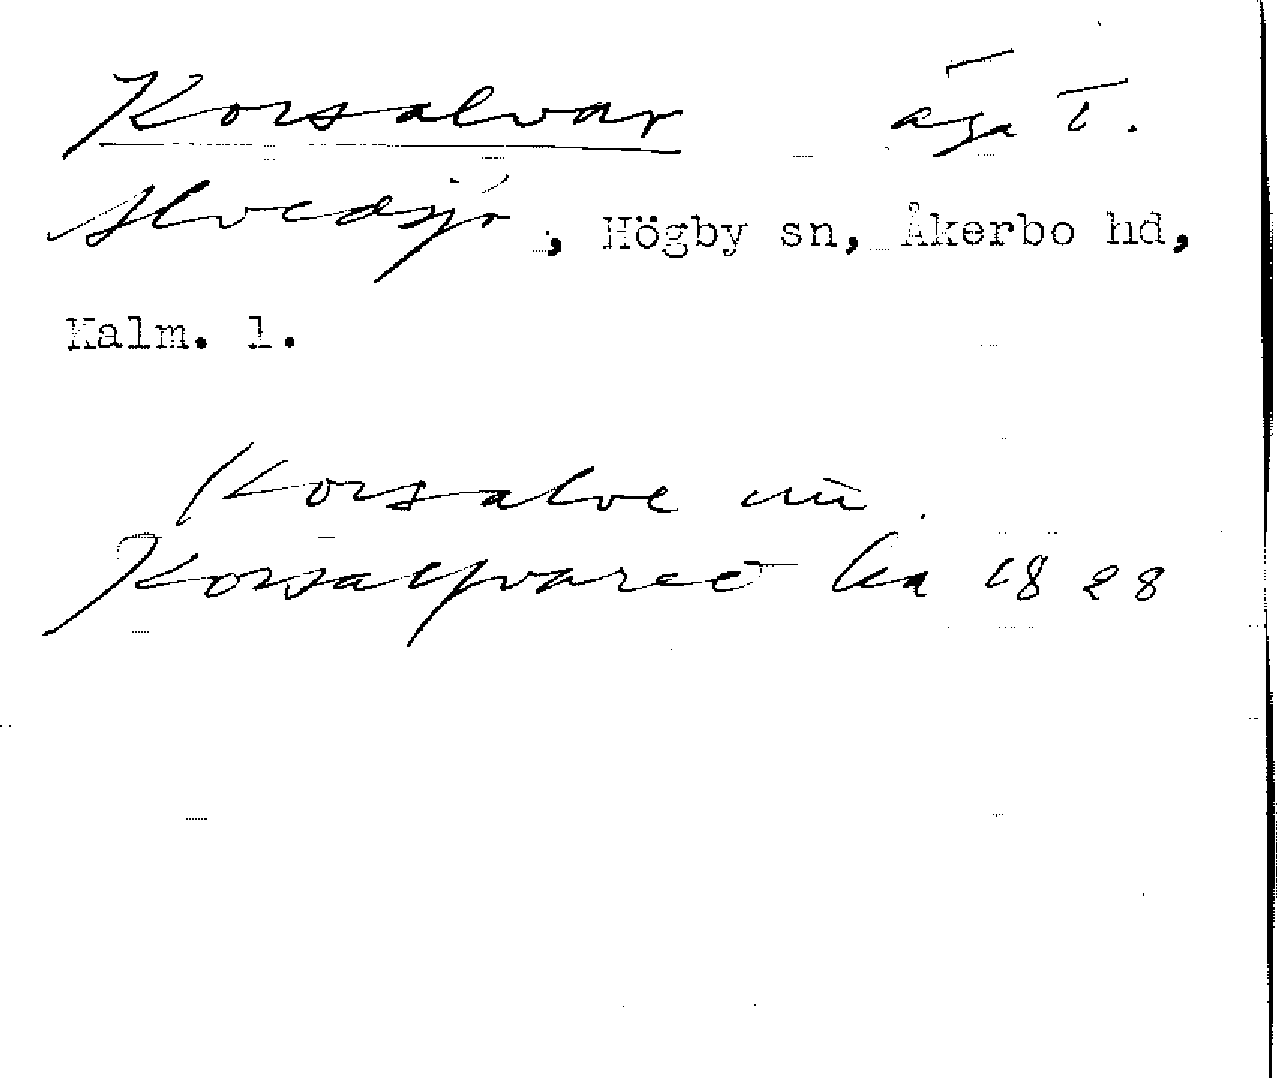 Korsalvar äga t.
Alvedsjö, Högby sn, Åkerbo hd,
Kalm. l.
Korsalve un
Korsalfvaree ha 1828